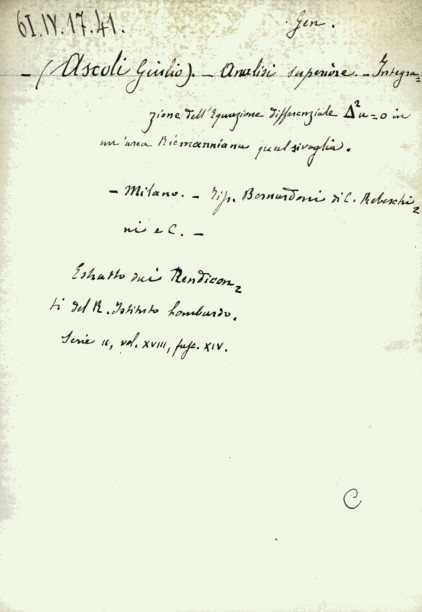 61.IV.17.41.
Gen.
– (Ascoli Giulio). – Analisi superiore. – Integra=
zione dell'Equazione differenziale Δ²u=0 in
un'area Riemanniana qualsivoglia.
– Milano. – Tip. Bernardoni di C. Rebeschi=
ni e C. –
Estratto dai Rendicon=
ti del R. Istituto Lombardo.
Serie II, vol. XVIII, fasc. XIV.
C